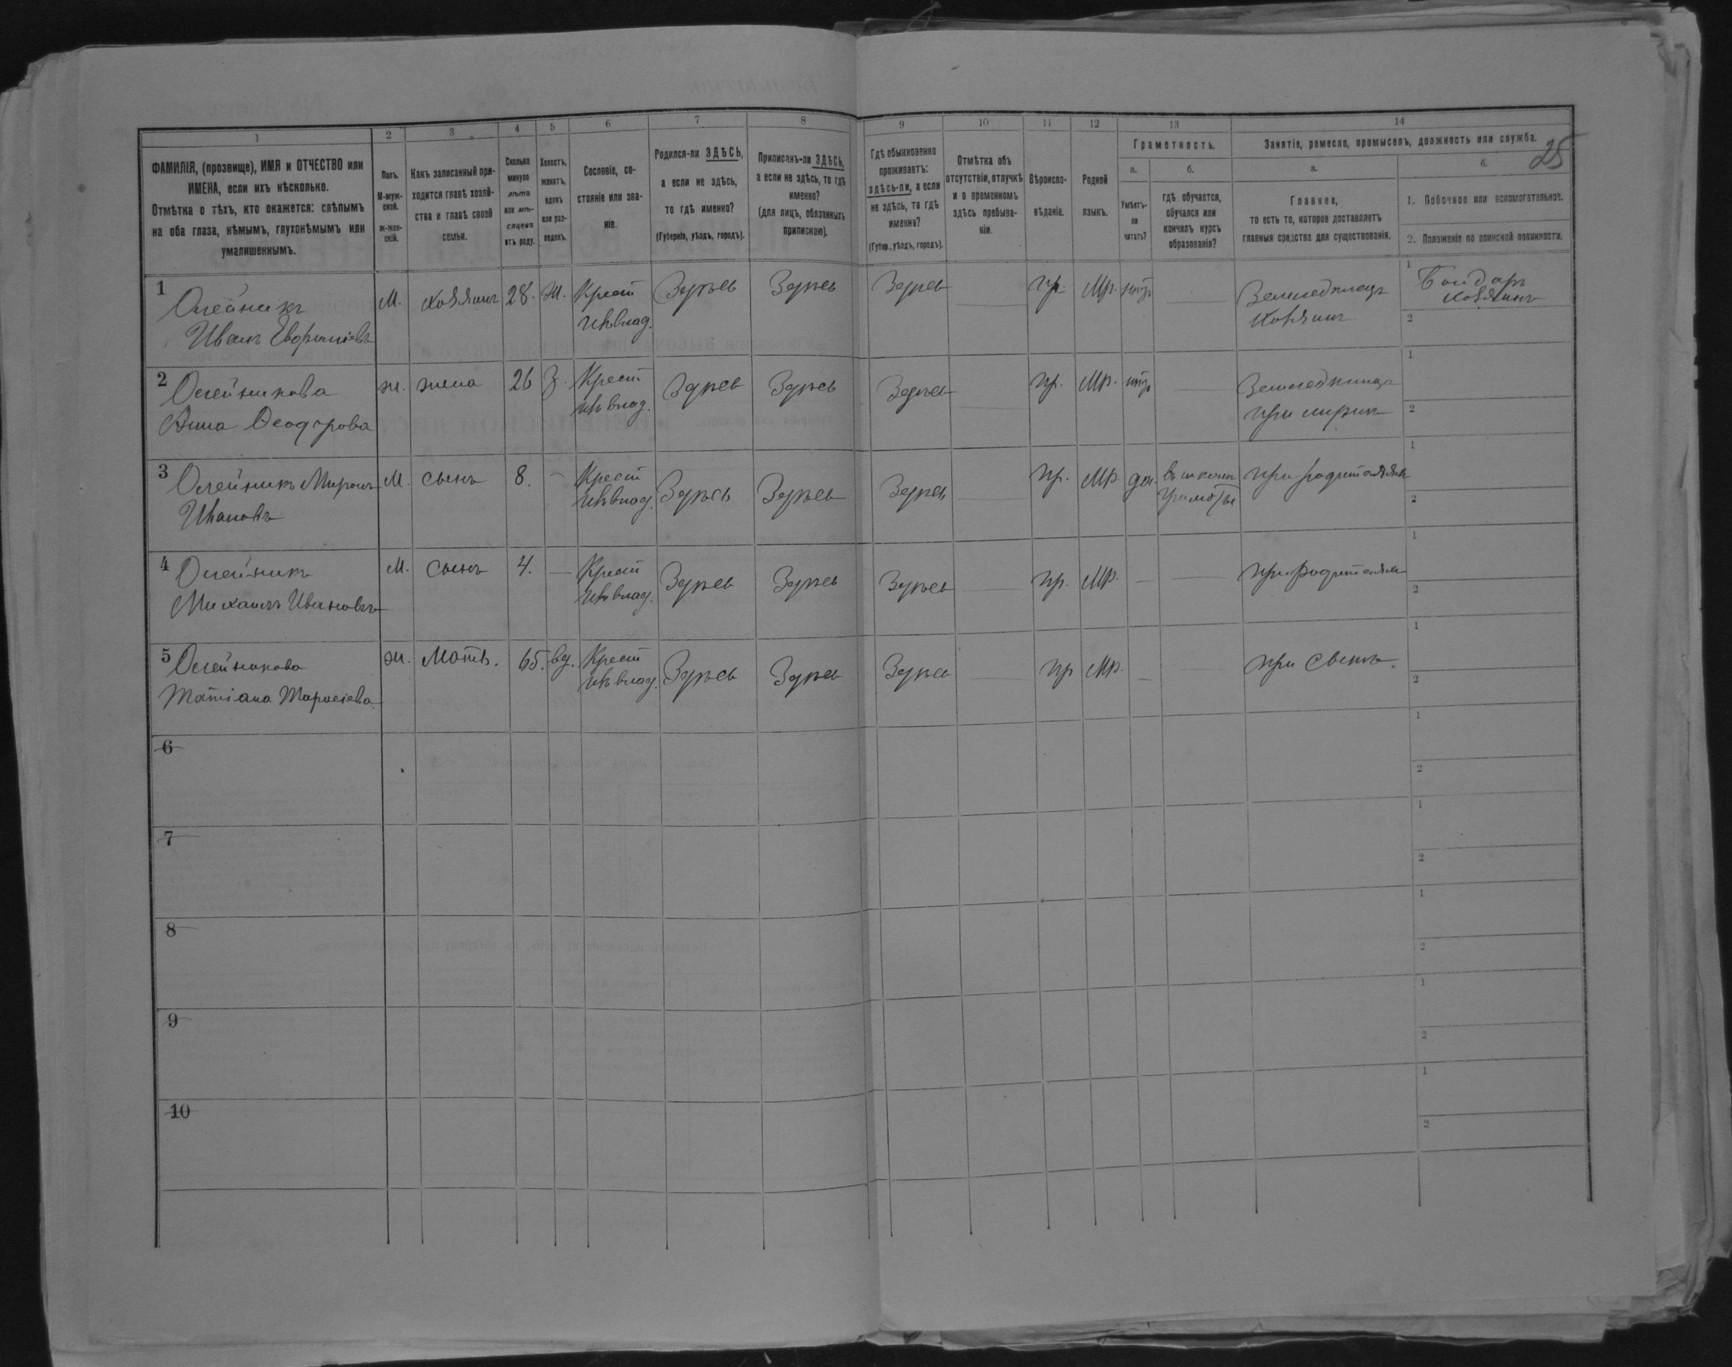 25
1 2 3 4 5 6 7 8 9 10 11 12 13 14
ФАМИЛІЯ, (прозвище), ИМЯ и ОТЧЕСТВО или
ИМЕНА, если ихъ нѣсколько.
Отмѣтка о тѣхъ, кто окажется: слѣпымъ
на оба глаза, нѣмымъ, глухонѣмымъ или
умалишеннымъ.
Полъ.
М-муж-
ской.
ж-жен-
скій.
Какъ записанный при-
ходится главѣ хозяй-
ства и главѣ своей
семьи.
Сколько
минуло
лѣтъ
или мѣ-
сяцевъ
отъ роду.
Холостъ,
женатъ,
вдовъ
или раз-
веденъ.
Сословіе, со-
стояніе или зва-
ніе.
Родился-ли ЗДѢСЬ,
а если не здѣсь,
то гдѣ именно?
(Губернія, уѣздъ, городъ).
Приписанъ-ли ЗДѢСЬ,
а если не здѣсь, то гдѣ
именно?
(для лицъ, обязанныхъ
припискою).
Гдѣ обыкновенно
проживаетъ:
здѣсь-ли, а если
не здѣсь, то гдѣ
именно?
(Губер., уѣздъ, городъ).
Отмѣтка объ
отсутствіи, отлучкѣ
и о временномъ
здѣсь пребыва-
ніи.
Вѣроиспо-
вѣданіе.
Родной
языкъ.
Грамотность.
а.
Умѣетъ-
ли
читать?
б.
гдѣ обучается,
обучался или
кончилъ курсъ
образованія?
Занятіе, ремесло, промыселъ, должность или служба.
а.
Главное,
то есть то, которое доставляетъ
главныя средства для существованія.
б.
1. Побочное или вспомогательное.
2. Положеніе по воинской повинности.
1 Олейникъ М. хозяинъ 28. ж. Крест Здѣсь Здѣсь Здѣсь пр. Мр. нѣтъ Земледѣлецъ 1 Бондарь
Иванъ из влад. хозяинъ хозяинъ
2
2 Олейникова ж. жена 26 З. Крест Здѣсь Здѣсь Здѣсь пр. Мр. нѣтъ 1
Анна Феодорова из влад. 2
3 Олейникъ Миронъ М. сынъ 8. Крест Здѣсь Здѣсь Здѣсь пр. Мр. да. въ школѣ при родителяхъ 1
Ивановъ из влад. грамоты 2
4 Олейникъ М. сынъ 4. Крест Здѣсь Здѣсь Здѣсь пр. Мр. при родителяхъ 1
Михаилъ Ивановъ из влад. 2
5 Олейникова ж. Мать. 65. вд. Крест Здѣсь Здѣсь Здѣсь пр Мр. при сынѣ. 1
Татіана Тарасіева из влад. 2
6 1
2
7 1
2
8 1
2
9 1
2
10 1
2